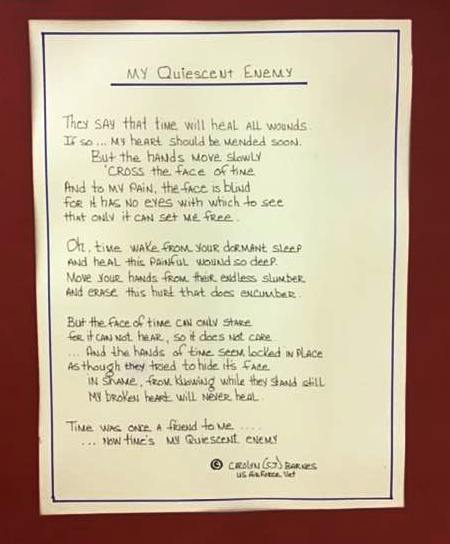 My Quiescent Enemy
They say that time will heal all wounds.
If so ... my heart should be mended soon.
But the hands move slowly
'cross the face of time
And to my pain, the face is blind
for it has no eyes with which to see
that only it can set me free.
Oh, time wake from your dormant sleep
and heal this painful wound so deep.
Move your hands from their endless slumber
and erase this hurt that does encumber.
But the face of time can only stare
for it can not hear, so it does not care
... And the hands of time seem locked in place
As though they tried to hide its face
in shame, from knowing while they stand still
my broken heart will never heal.
Time was once a friend to me ....
... now time's my quiescent enemy
© Carolyn (CJ) Barnes
US Air Force Vet